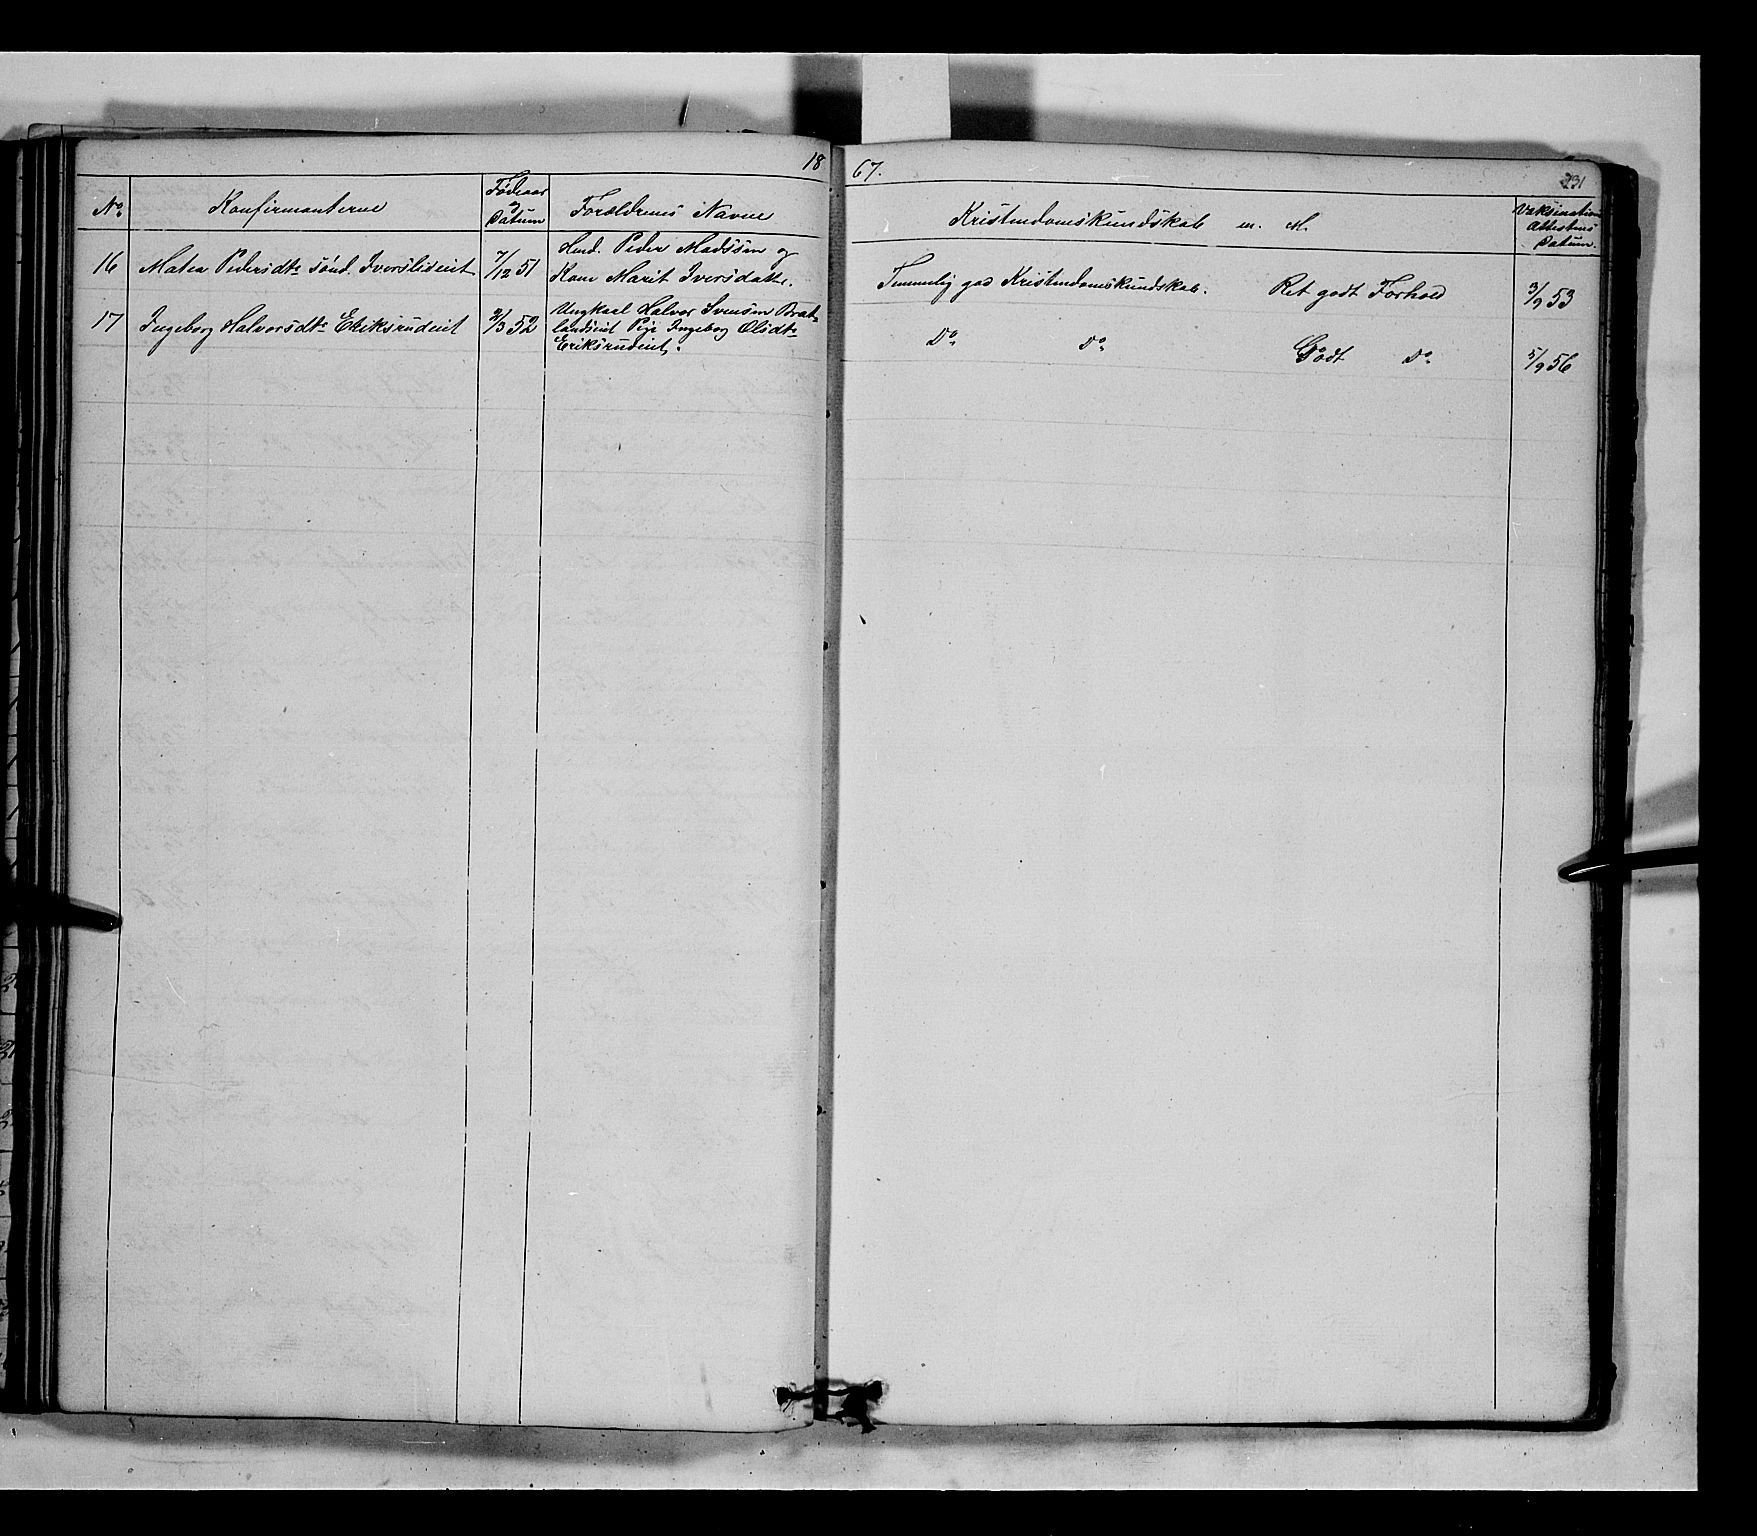 18
67.
231
No. Konfirmanterne Fødeaar og Datum Forældrenes Navne Kristendomskundskab m. M. Vaksinations Attestens Datum.
16 Matea Pedersdtr. sönd. Iverslieeiet 7/12 51 Husd. Peder Madssen og
Kone Marit Iversdatter. Temmelig god Kristendomskundskab. Ret godt Forhold 3/9 53
17 Ingeborg Halvorsdtr. Eriksrudeiet 2/3 52 Ungkarl Halvor Svensen Brat-
landseiet Pige Ingeborg Olsdtr.
Eriksrudeiet. Do. Do. Godt Do. 5/9 56